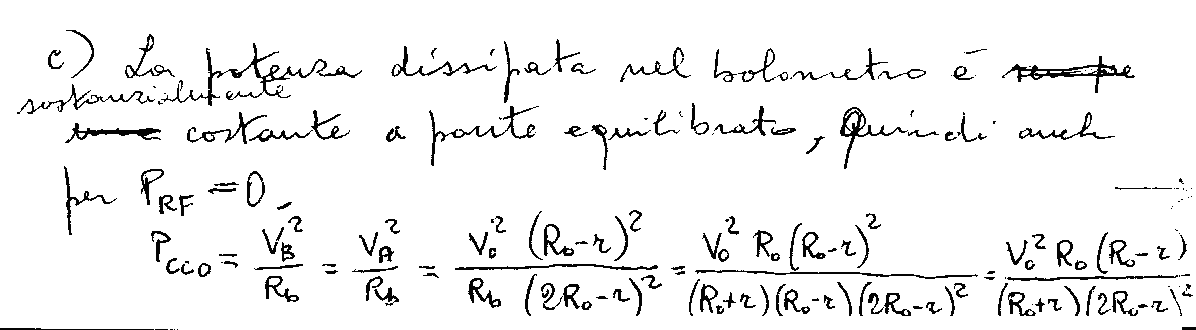 c) La potenza dissipata nel bolometro è
sostanzialmente
costante a ponte equilibrato, Quindi anch
per P_RF = 0.
P_CC0 = V_B^2 / R_b = V_A^2 / R_b = V_0^2 (R_0-r)^2 / R_b (2R_0-r)^2 = V_0^2 R_0 (R_0-r)^2 / (R_0+r)(R_0-r)(2R_0-r)^2 = V_0^2 R_0 (R_0-r) / (R_0+r)(2R_0-r)^2